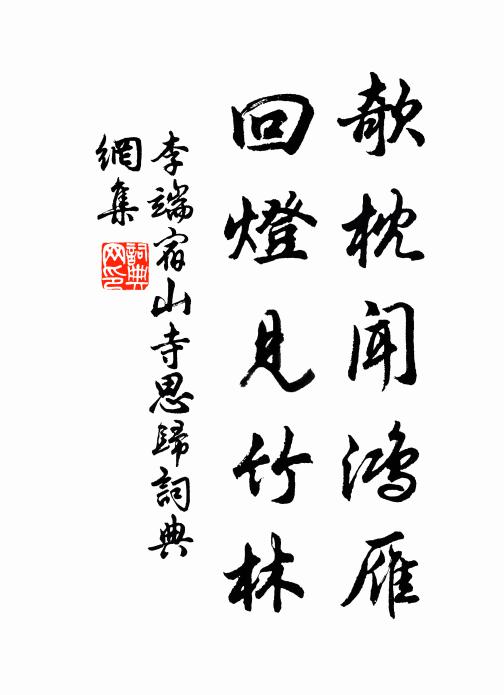 欹枕聞鴻雁
回燈見竹林
李端宿山寺思歸詞典
網集
詞典
网印